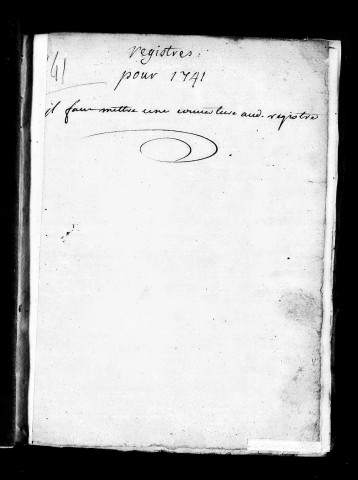 registres
41
pour 1741
il faut mettre une couverture aud. registre